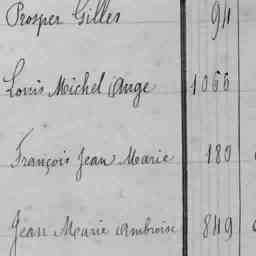 Prosper Gilles 94
Louis Michel Ange 1066
François Jean Marie 180
Jean Marie Ambroise 849